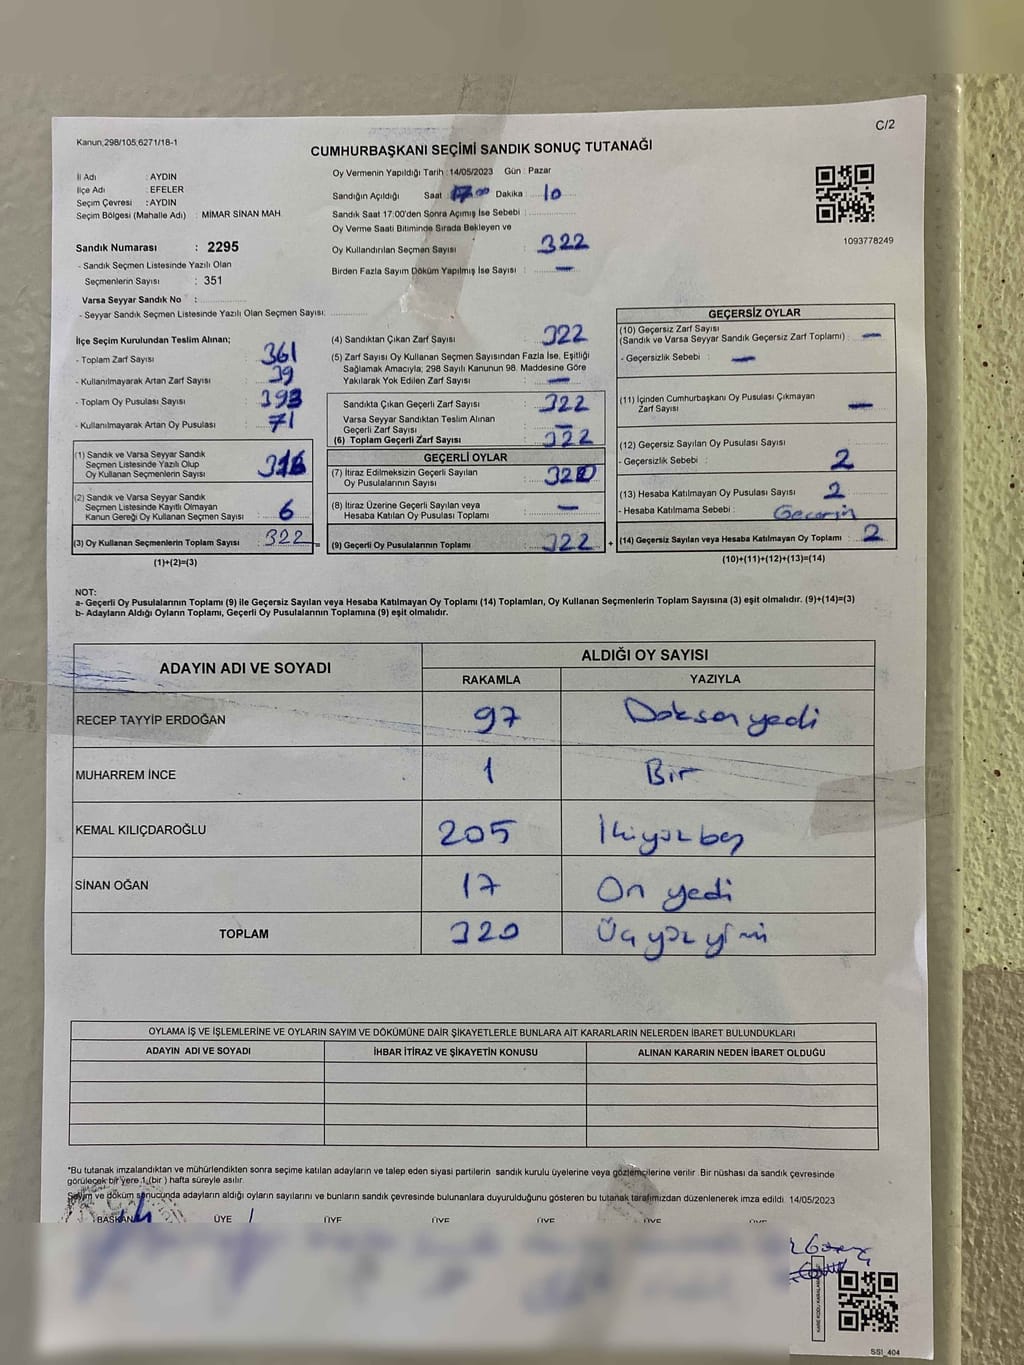 C/2
Kanun;298/105;6271/18-1
CUMHURBAŞKANI SEÇİMİ SANDIK SONUÇ TUTANAĞI
İl Adı : AYDIN
İlçe Adı : EFELER
Seçim Çevresi : AYDIN
Seçim Bölgesi (Mahalle Adı) : MİMAR SİNAN MAH.
Sandık Numarası : 2295
- Sandık Seçmen Listesinde Yazılı Olan
Seçmenlerin Sayısı : 351
Varsa Seyyar Sandık No :
- Seyyar Sandık Seçmen Listesinde Yazılı Olan Seçmen Sayısı:
Oy Vermenin Yapıldığı Tarih : 14/05/2023 Gün : Pazar
Sandığın Açıldığı Saat : 17.00 Dakika 10
Sandık Saat 17:00'den Sonra Açımış İse Sebebi :
Oy Verme Saati Bitiminde Sırada Bekleyen ve
Oy Kullandırılan Seçmen Sayısı : 322
Birden Fazla Sayım Döküm Yapılmış İse Sayısı : —
1093778249
İlçe Seçim Kurulundan Teslim Alınan;
- Toplam Zarf Sayısı : 361
- Kullanılmayarak Artan Zarf Sayısı : 39
- Toplam Oy Pusulası Sayısı : 393
- Kullanılmayarak Artan Oy Pusulası : 71
(1) Sandık ve Varsa Seyyar Sandık
Seçmen Listesinde Yazılı Olup
Oy Kullanan Seçmenlerin Sayısı : 316
(2) Sandık ve Varsa Seyyar Sandık
Seçmen Listesinde Kayıtlı Olmayan
Kanun Gereği Oy Kullanan Seçmen Sayısı : 6
(3) Oy Kullanan Seçmenlerin Toplam Sayısı : 322
(1)+(2)=(3)
(4) Sandıktan Çıkan Zarf Sayısı : 322
(5) Zarf Sayısı Oy Kullanan Seçmen Sayısından Fazla İse, Eşitliği
Sağlamak Amacıyla; 298 Sayılı Kanunun 98. Maddesine Göre
Yakılarak Yok Edilen Zarf Sayısı : —
Sandıkta Çıkan Geçerli Zarf Sayısı : 322
Varsa Seyyar Sandıktan Teslim Alınan
Geçerli Zarf Sayısı : —
(6) Toplam Geçerli Zarf Sayısı : 322
GEÇERLİ OYLAR
(7) İtiraz Edilmeksizin Geçerli Sayılan
Oy Pusulalarının Sayısı : 320
(8) İtiraz Üzerine Geçerli Sayılan veya
Hesaba Katılan Oy Pusulası Toplamı : —
(9) Geçerli Oy Pusulalarının Toplamı : 322
GEÇERSİZ OYLAR
(10) Geçersiz Zarf Sayısı
(Sandık ve Varsa Seyyar Sandık Geçersiz Zarf Toplamı) : —
- Geçersizlik Sebebi : —
(11) İçinden Cumhurbaşkanı Oy Pusulası Çıkmayan
Zarf Sayısı : —
(12) Geçersiz Sayılan Oy Pusulası Sayısı :
- Geçersizlik Sebebi : 2
(13) Hesaba Katılmayan Oy Pusulası Sayısı : 2
- Hesaba Katılmama Sebebi :
(14) Geçersiz Sayılan veya Hesaba Katılmayan Oy Toplamı : 2
(10)+(11)+(12)+(13)=(14)
NOT:
a- Geçerli Oy Pusulalarının Toplamı (9) ile Geçersiz Sayılan veya Hesaba Katılmayan Oy Toplamı (14) Toplamları, Oy Kullanan Seçmenlerin Toplam Sayısına (3) eşit olmalıdır. (9)+(14)=(3)
b- Adayların Aldığı Oyların Toplamı, Geçerli Oy Pusulalarının Toplamına (9) eşit olmalıdır.
ADAYIN ADI VE SOYADI ALDIĞI OY SAYISI
RAKAMLA YAZIYLA
RECEP TAYYİP ERDOĞAN 97 Doksan yedi
MUHARREM İNCE 1 Bir
KEMAL KILIÇDAROĞLU 205 İkiyüz beş
SİNAN OĞAN 17 On yedi
TOPLAM 320 Üç yüz yirmi
OYLAMA İŞ VE İŞLEMLERİNE VE OYLARIN SAYIM VE DÖKÜMÜNE DAİR ŞİKAYETLERLE BUNLARA AİT KARARLARIN NELERDEN İBARET BULUNDUKLARI
ADAYIN ADI VE SOYADI İHBAR İTİRAZ VE ŞİKAYETİN KONUSU ALINAN KARARIN NEDEN İBARET OLDUĞU
*Bu tutanak imzalandıktan ve mühürlendikten sonra seçime katılan adayların ve talep eden siyasi partilerin sandık kurulu üyelerine veya gözlemcilerine verilir. Bir nüshası da sandık çevresinde
görülecek bir yere 1 (bir) hafta süreyle asılır.
Sayım ve döküm sonucunda adayların aldığı oyların sayılarını ve bunların sandık çevresinde bulunanlara duyurulduğunu gösteren bu tutanak tarafımızdan düzenlenerek imza edildi. 14/05/2023
BAŞKAN ÜYE ÜYE ÜYE ÜYE ÜYE ÜYE
SSI_404